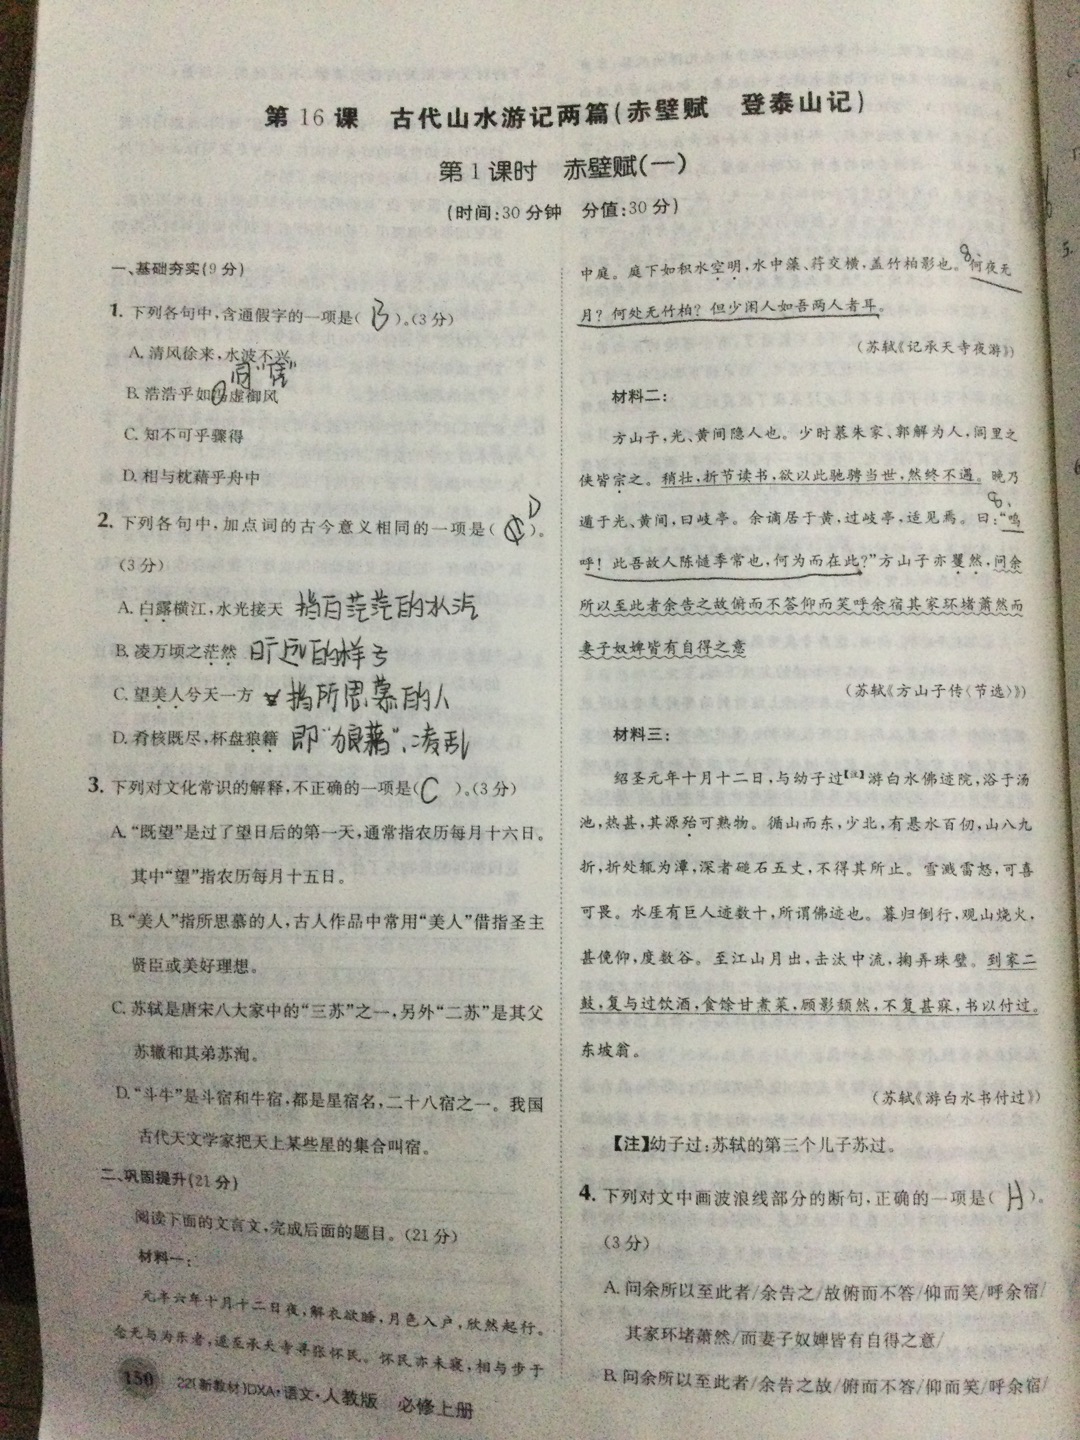 第16课 古代山水游记两篇(赤壁赋 登泰山记)
第1课时 赤壁赋(一)
(时间:30分钟 分值:30分)
一、基础夯实(9分)
1. 下列各句中,含通假字的一项是( B )。(3分)
A. 清风徐来,水波不兴
同"凭"
B. 浩浩乎如冯虚御风
C. 知不可乎骤得
D. 相与枕藉乎舟中
2. 下列各句中,加点词的古今意义相同的一项是( D )。
(3分)
A. 白露横江,水光接天 指白茫茫的水汽
B. 凌万顷之茫然 旷远的样子
C. 望美人兮天一方 指所思慕的人
D. 肴核既尽,杯盘狼籍 即"狼藉",凌乱
3. 下列对文化常识的解释,不正确的一项是( C )。(3分)
A. "既望"是过了望日后的第一天,通常指农历每月十六日。
其中"望"指农历每月十五日。
B. "美人"指所思慕的人,古人作品中常用"美人"借指圣主
贤臣或美好理想。
C. 苏轼是唐宋八大家中的"三苏"之一,另外"二苏"是其父
苏辙和其弟苏洵。
D. "斗牛"是斗宿和牛宿,都是星宿名,二十八宿之一。我国
古代天文学家把天上某些星的集合叫宿。
二、巩固提升(21分)
阅读下面的文言文,完成后面的题目。(21分)
材料一:
元丰六年十月十二日夜,解衣欲睡,月色入户,欣然起行。
念无与为乐者,遂至承天寺寻张怀民。怀民亦未寝,相与步于
150 22(新教材)DXA·语文·人教版 必修上册
中庭。庭下如积水空明,水中藻、荇交横,盖竹柏影也。8.何夜无
月？何处无竹柏？但少闲人如吾两人者耳。
(苏轼《记承天寺夜游》)
材料二:
方山子,光、黄间隐人也。少时慕朱家、郭解为人,闾里之
侠皆宗之。稍壮,折节读书,欲以此驰骋当世,然终不遇。晚乃
遁于光、黄间,曰岐亭。余谪居于黄,过岐亭,适见焉。曰:8."呜
呼！此吾故人陈慥季常也,何为而在此?"方山子亦矍然,问余
所以至此者余告之故俯而不答仰而笑呼余宿其家环堵萧然而
妻子奴婢皆有自得之意
(苏轼《方山子传〈节选〉》)
材料三:
绍圣元年十月十二日,与幼子过【注】游白水佛迹院,浴于汤
池,热甚,其源殆可熟物。循山而东,少北,有悬水百仞,山八九
折,折处辄为潭,深者磓石五丈,不得其所止。雪溅雷怒,可喜
可畏。水厓有巨人迹数十,所谓佛迹也。暮归倒行,观山烧火,
甚俛仰,度数谷。至江山月出,击汰中流,掬弄珠璧。到家二
鼓,复与过饮酒,食馀甘煮菜,顾影颓然,不复甚寐,书以付过。
东坡翁。
(苏轼《游白水书付过》)
【注】幼子过:苏轼的第三个儿子苏过。
4. 下列对文中画波浪线部分的断句,正确的一项是( A )。
(3分)
A. 问余所以至此者/余告之/故俯而不答/仰而笑/呼余宿/
其家环堵萧然/而妻子奴婢皆有自得之意/
B. 问余所以至此者/余告之故/俯而不答/仰而笑/呼余宿/